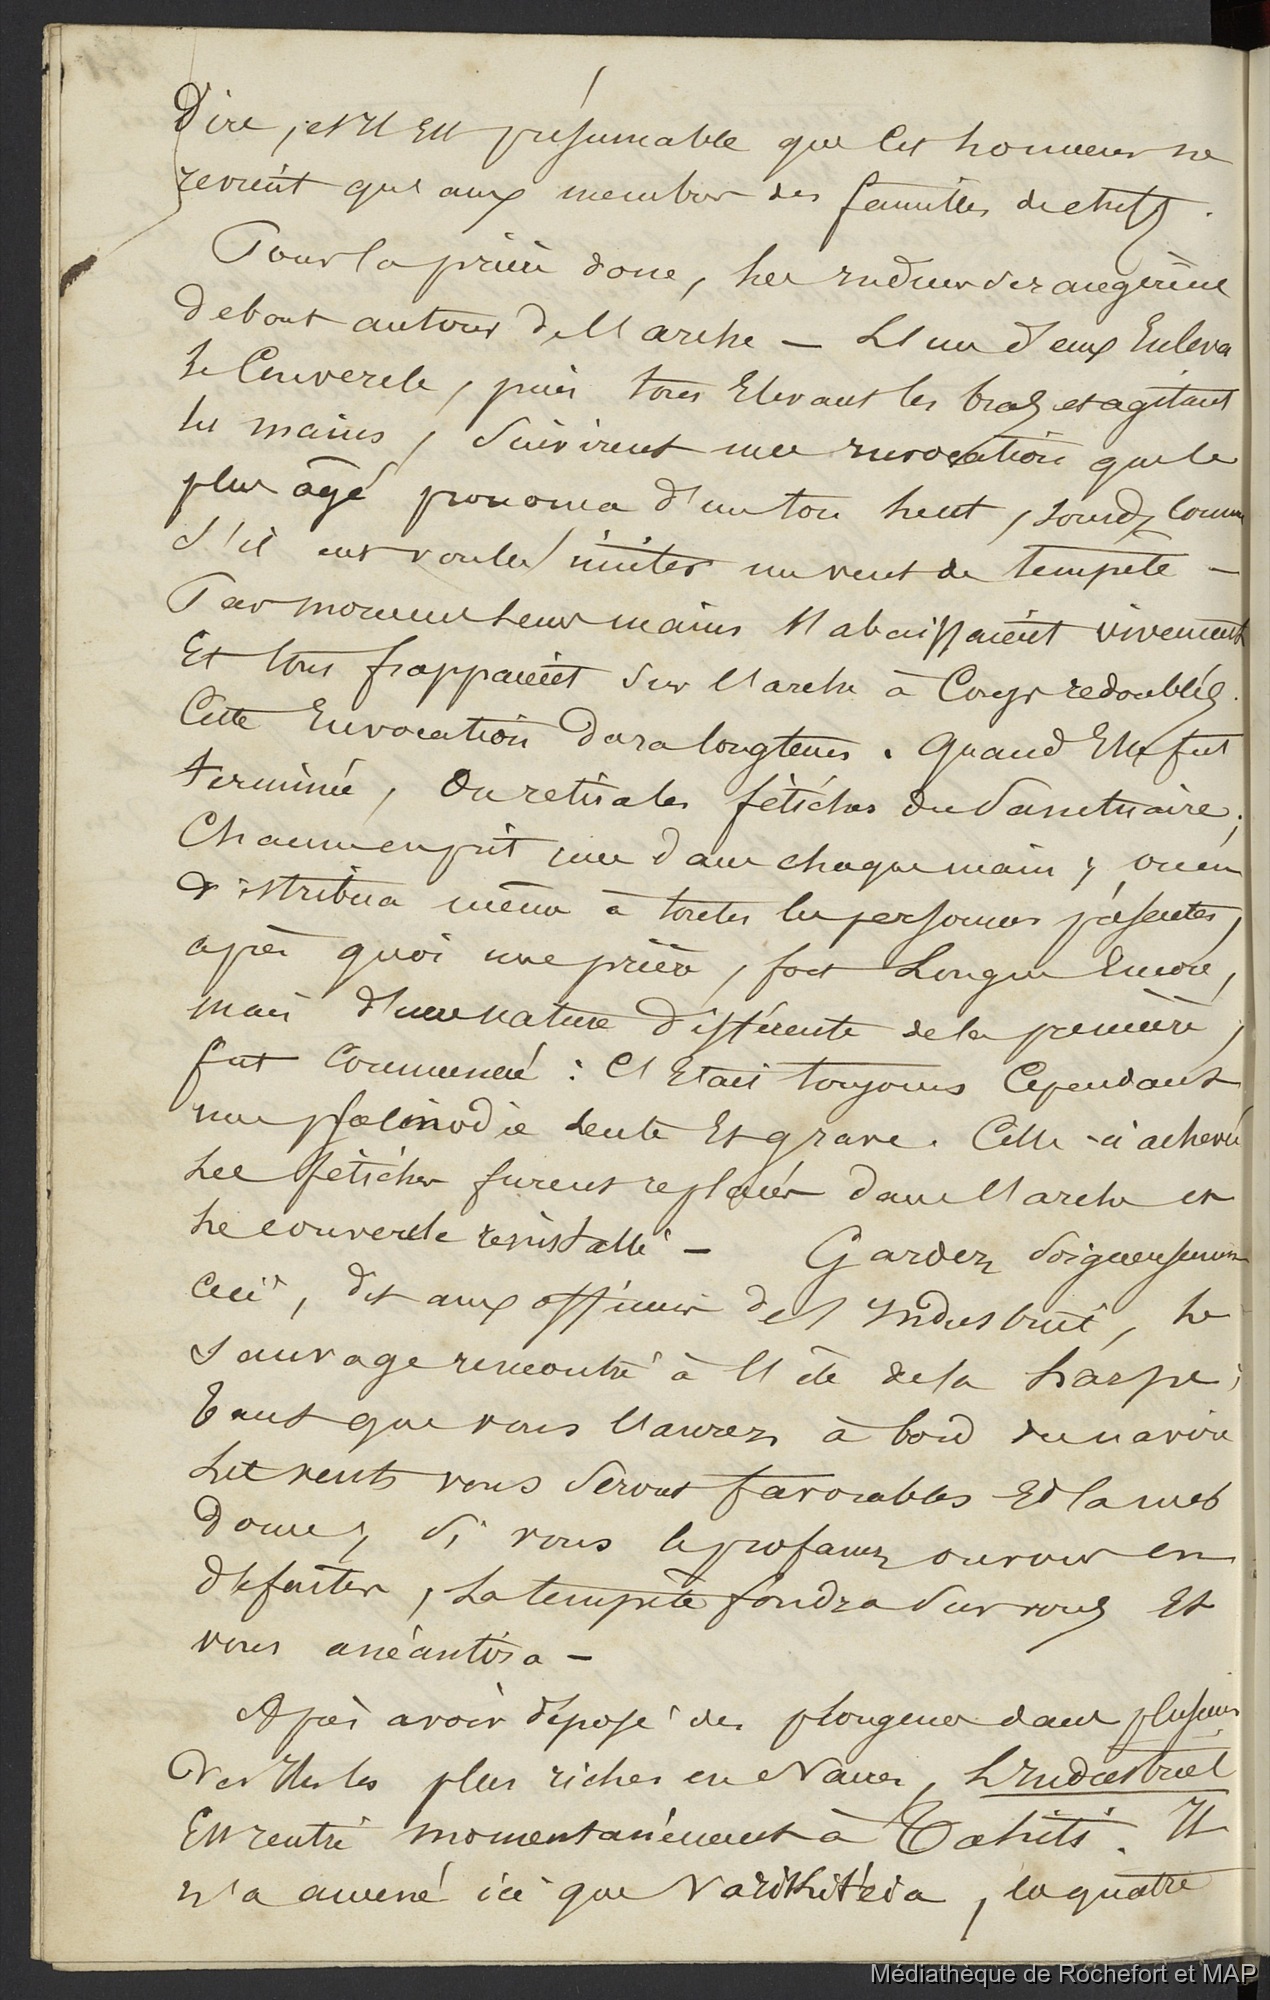 Dire, et Il Est présumable que Cet honneur ne
revient qu'aux membres des familles de chefs.
Pour la prière donc, les Indiens se rangèrent
debout autour de l'arche — L'un d'eux Enleva
le Couvercle, puis tous Elevant les bras et agitant
les mains, Suivirent une invocation que le
plus âgé prononça d'un ton lent, sourd, Comme
S'il eut voulu imiter un vent de tempête —
Par moment leurs mains s'abaissaient vivement
Et tous frappaient Sur l'arche à Coups redoublés.
Cette Invocation dura longtems. Quand Elle fut
terminée, On retira les fétiches du Sanctuaire;
Chacun en prit une dans chaque main; on en
distribua même à toutes les personnes présentes,
après quoi une prière, fort Longue Encore,
mais d'une nature différente de la première,
fut Commencée : C'Etait toujours Cependant
une psalmodie lente Et grave. Celle-ci achevée
Les fétiches furent replacés dans l'arche et
le couvercle réinstallé — Gardez Soigneusement
Ceci, dit aux officiers de l'Industriel, le
Sauvage rencontré à l'île de la harpe;
tant que vous l'aurez à bord du navire
Les vents vous Seront favorables Et la mer
Douce; Si vous le profanez ou vous en
défaites, La tempête fondra Sur vous Et
vous anéantira —
Après avoir déposé des plongeurs dans plusieurs
des Iles les plus riches en Nacres, L'Industriel
Est rentré momentanément à Tahiti. Il
n'a amené ici que Varikitéria, la quatre
Médiathèque de Rochefort et MAP